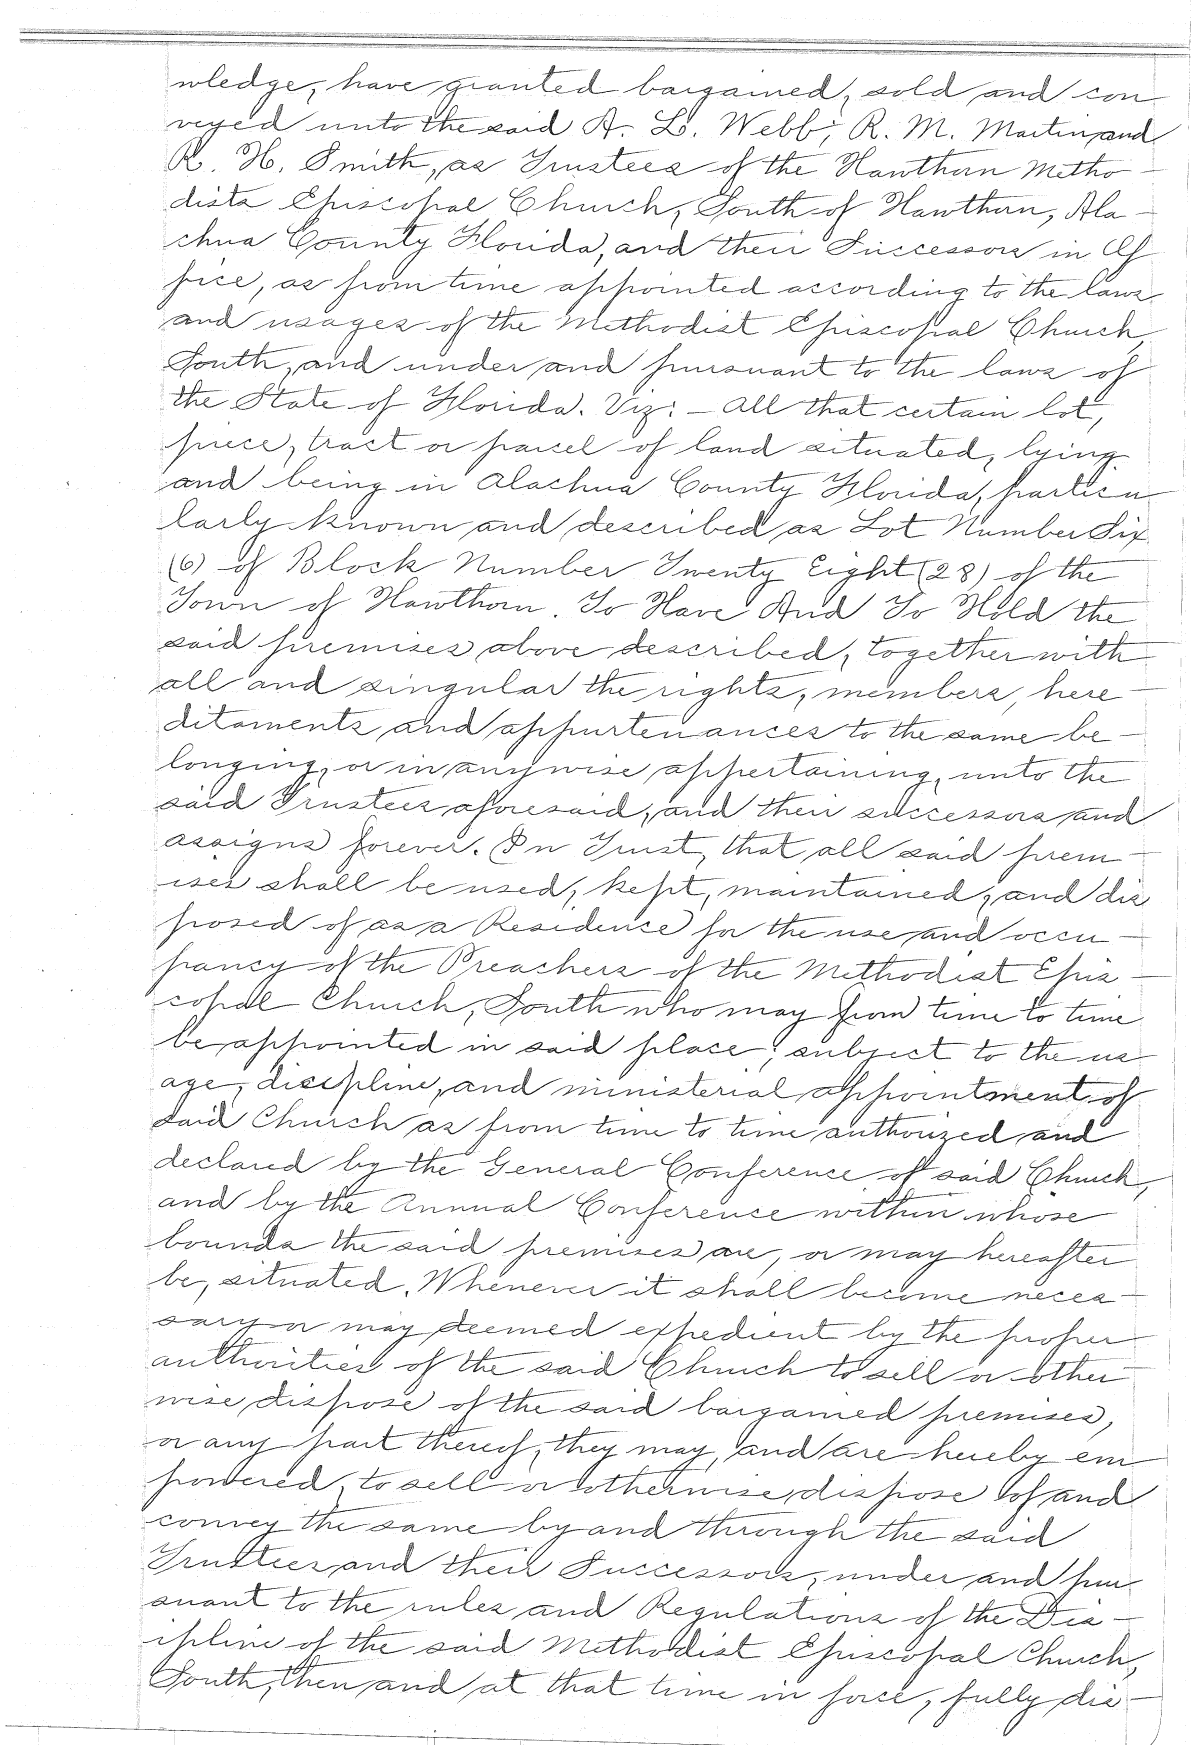 wledge, have granted bargained, sold and con
veyed unto the said A. L. Webb, R. M. Martin, and
R. H. Smith, as Trustees of the Hawthorn Metho-
dists Episcopal Church, South of Hawthorn, Ala-
chua County Florida, and their Successors in Of
fice, as from time appointed according to the laws
and usages of the Methodist Episcopal Church,
South, and under and pursuant to the laws of
the State of Florida. Viz: - All that certain lot,
piece, tract or parcel of land situated, lying
and being in Alachua County Florida, particu
larly known and described as Lot Number Six
(6) of Block Number Twenty Eight (28) of the
Town of Hawthorn. To Have And To Hold the
said premises above described, together with
all and singular the rights, members, here-
ditaments and appurtenances to the same be-
longing, or in anywise appertaining, unto the
said Trustees aforesaid, and their successors and
assigns forever. In Trust, that all said prem-
ises shall be used, kept, maintained, and dis
posed of as a Residence for the use and occu-
pancy of the Preachers of the Methodist Epis-
copal Church, South who may from time to time
be appointed in said place; subject to the us
age, discipline, and ministerial appointment of
said Church as from time to time authorized and
declared by the General Conference of said Church,
and by the Annual Conference within whose
bounds the said premises are, or may hereafter
be, situated. Whenever it shall become neces-
sary or may deemed expedient by the proper
authorities of the said Church to sell or other-
wise dispose of the said bargained premises,
or any part thereof, they may, and are hereby em
powered, to sell or otherwise dispose of and
convey the same by and through the said
Trustees and their Successors, under and pur
suant to the rules and Regulations of the Dis-
ipline of the said Methodist Episcopal Church,
South, then and at that time in force, fully dis-